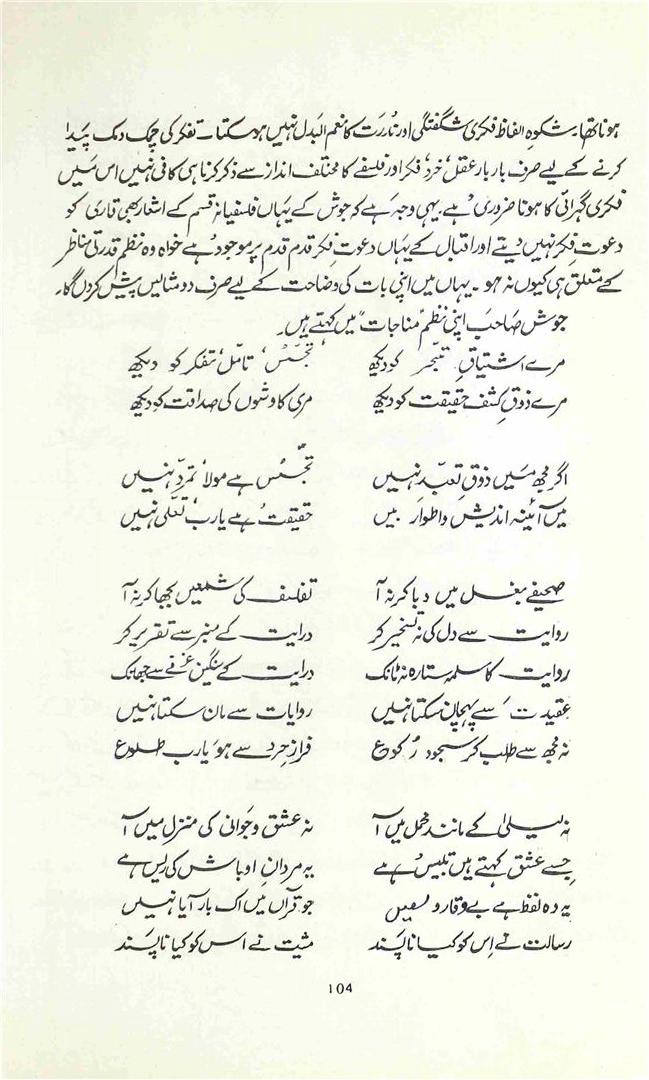 ہونا تھا۔ شکوہِ الفاظ فکری شگفتگی اور نُدرت کا نعم البدل نہیں ہو سکتا۔ تفکر کی چمک دمک پَیدا
کرنے کے لیے صرف بار بار عقل، خرد، فکر اور فلسفے کا مختلف انداز سے ذکر کرنا ہی کافی نہیں اس مَیں
فکری گہرائی کا ہونا ضروری ہے۔ یہی وجہ ہے کہ جوش کے یہاں فلسفیانہ قسم کے اشعار بھی قاری کو
دعوتِ فکر نہیں دیتے اور اقبال کے یہاں دعوتِ فکر قدم قدم پر موجود ہے خواہ وہ نظم قدرتی مناظر
کے متعلق ہی کیوں نہ ہو۔ یہاں میں اپنی بات کی وضاحت کے لیے صرف دو مثالیں پیش کردں گا۔
جوش صاحب اپنی نظم "مناجات" میں کہتے ہیں۔
مرے اشتیاقِ تبحّر کو دیکھ تجسّس، تامّل، تفکر کو دیکھ
مرے ذوقِ کشفِ حقیقت کو دیکھ مری کاوشوں کی صداقت کو دیکھ
اگر مجھ مَیں ذوقِ تعبّد نہیں تجسّس ہے مولا، تمرّد نہیں
میں آئینہ اندیش و اطوار بیں حقیقت ہے یارب، تعلّی نہیں
صحیفے بغل میں دبا کر نہ آ تفلسف کی شمعیں بجھا کر نہ آ
روایت سے دل کی نہ تسخیر کر درایت کے منبر سے تقریر کر
روایت کا سلمہ ستارہ نہ ٹانک درایت کے سنگین غرفے سے جھانک
عقیدت سے پہچان سکتا نہیں روایات سے مان سکتا نہیں
نہ مجھ سے طلب کر سجود و رکوع فرازِ خرد سے ہو یارب طلوع
نہ لیلیٰ کے مانند محمل میں آ نہ عشق و جوانی کی منزل میں آ
جسے عشق کہتے ہیں تلبیس ہے یہ مردانِ اوباش کی ریس ہے
یہ وہ لفظ ہے بے وقار و لعیں جو قرآں میں اک بار آیا نہیں
رسالت نے اِس کو کیا ناپسند مشیت نے اس کو کیا ناپسند
104